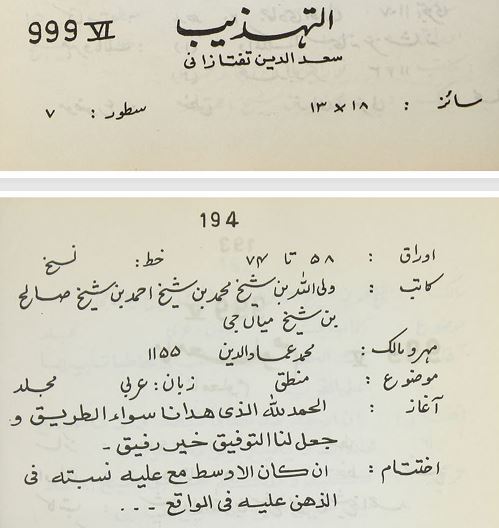 999 VI
التہذیب
سعد الدین تفتازانی
سائز : ۱۸ x ۱۳ سطور : ۷
194
اوراق : ۵۸ تا ۷۴ خط: نسخ
کاتب : ولی اللہ بن شیخ محمد بن شیخ احمد بن شیخ صالح
بن شیخ میاں جی
مہر و مالک : محمد عماد الدین ۱۱۵۵
موضوع : منطق زبان: عربی مجلد
آغاز : الحمد للہ الذی ھدانا سواء الطریق و
جعل لنا التوفیق خیر رفیق ۔
اختتام : ان کان الاوسط مع علیہ نسبتہ فی
الذھن علیہ فی الواقع ۔۔۔